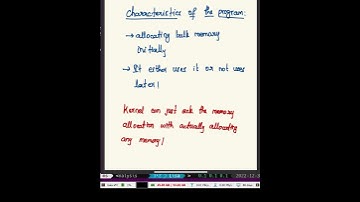 Characteristics of the program:
→ allocating bulk memory
initially
→ It either uses it or not uses
later!
Kernel can just ack the memory
allocation with actually allocating
any memory!